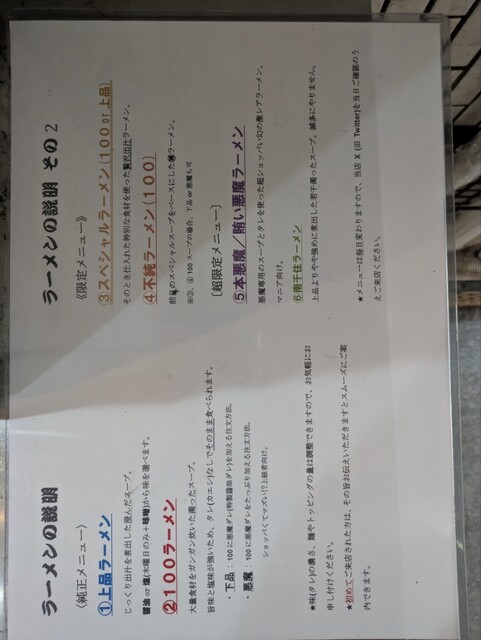 ラーメンの説明
〈純正メニュー〉
①上品ラーメン
じっくり出汁を煮出した澄んだスープ。
醤油 or 塩(木曜日のみ+味噌)から味を選べます。
②100ラーメン
大量食材をガンガン炊いた濁ったスープ。
旨味と塩味が強いため、タレ(カエシ)なしでそのまま食べられます。
・下品：100に悪魔ダレ(特製醤油ダレ)を加える注文方法。
・悪魔：100に悪魔ダレをたっぷり加える注文方法。
ショッパくてマズい!?上級者向け。
★味(タレ)の濃さ、麺やトッピングの量は調整できますので、お気軽にお
申し付けください。
★初めてご来店された方は、その旨お伝えいただきますとスムーズにご案
内できます。
ラーメンの説明 その2
《限定メニュー》
③スペシャルラーメン(100or上品)
そのとき仕入れた特別な食材を使った贅沢出汁ラーメン。
④不純ラーメン(100)
前日のスペシャルスープをベースにしたラーメン。
※③、④100スープの場合、下品or悪魔も可
[超限定メニュー]
⑤本悪魔／賄い悪魔ラーメン
悪魔専用のスープとタレを使った超ショッパい幻の激レアラーメン。
マニア向け。
⑥南千住ラーメン
上品よりやや強めに煮出した若干濁ったスープ。滅多にやりません。
★メニューは毎日変わりますので、当店X(旧Twitter)を当日ご確認のう
えご来店ください。